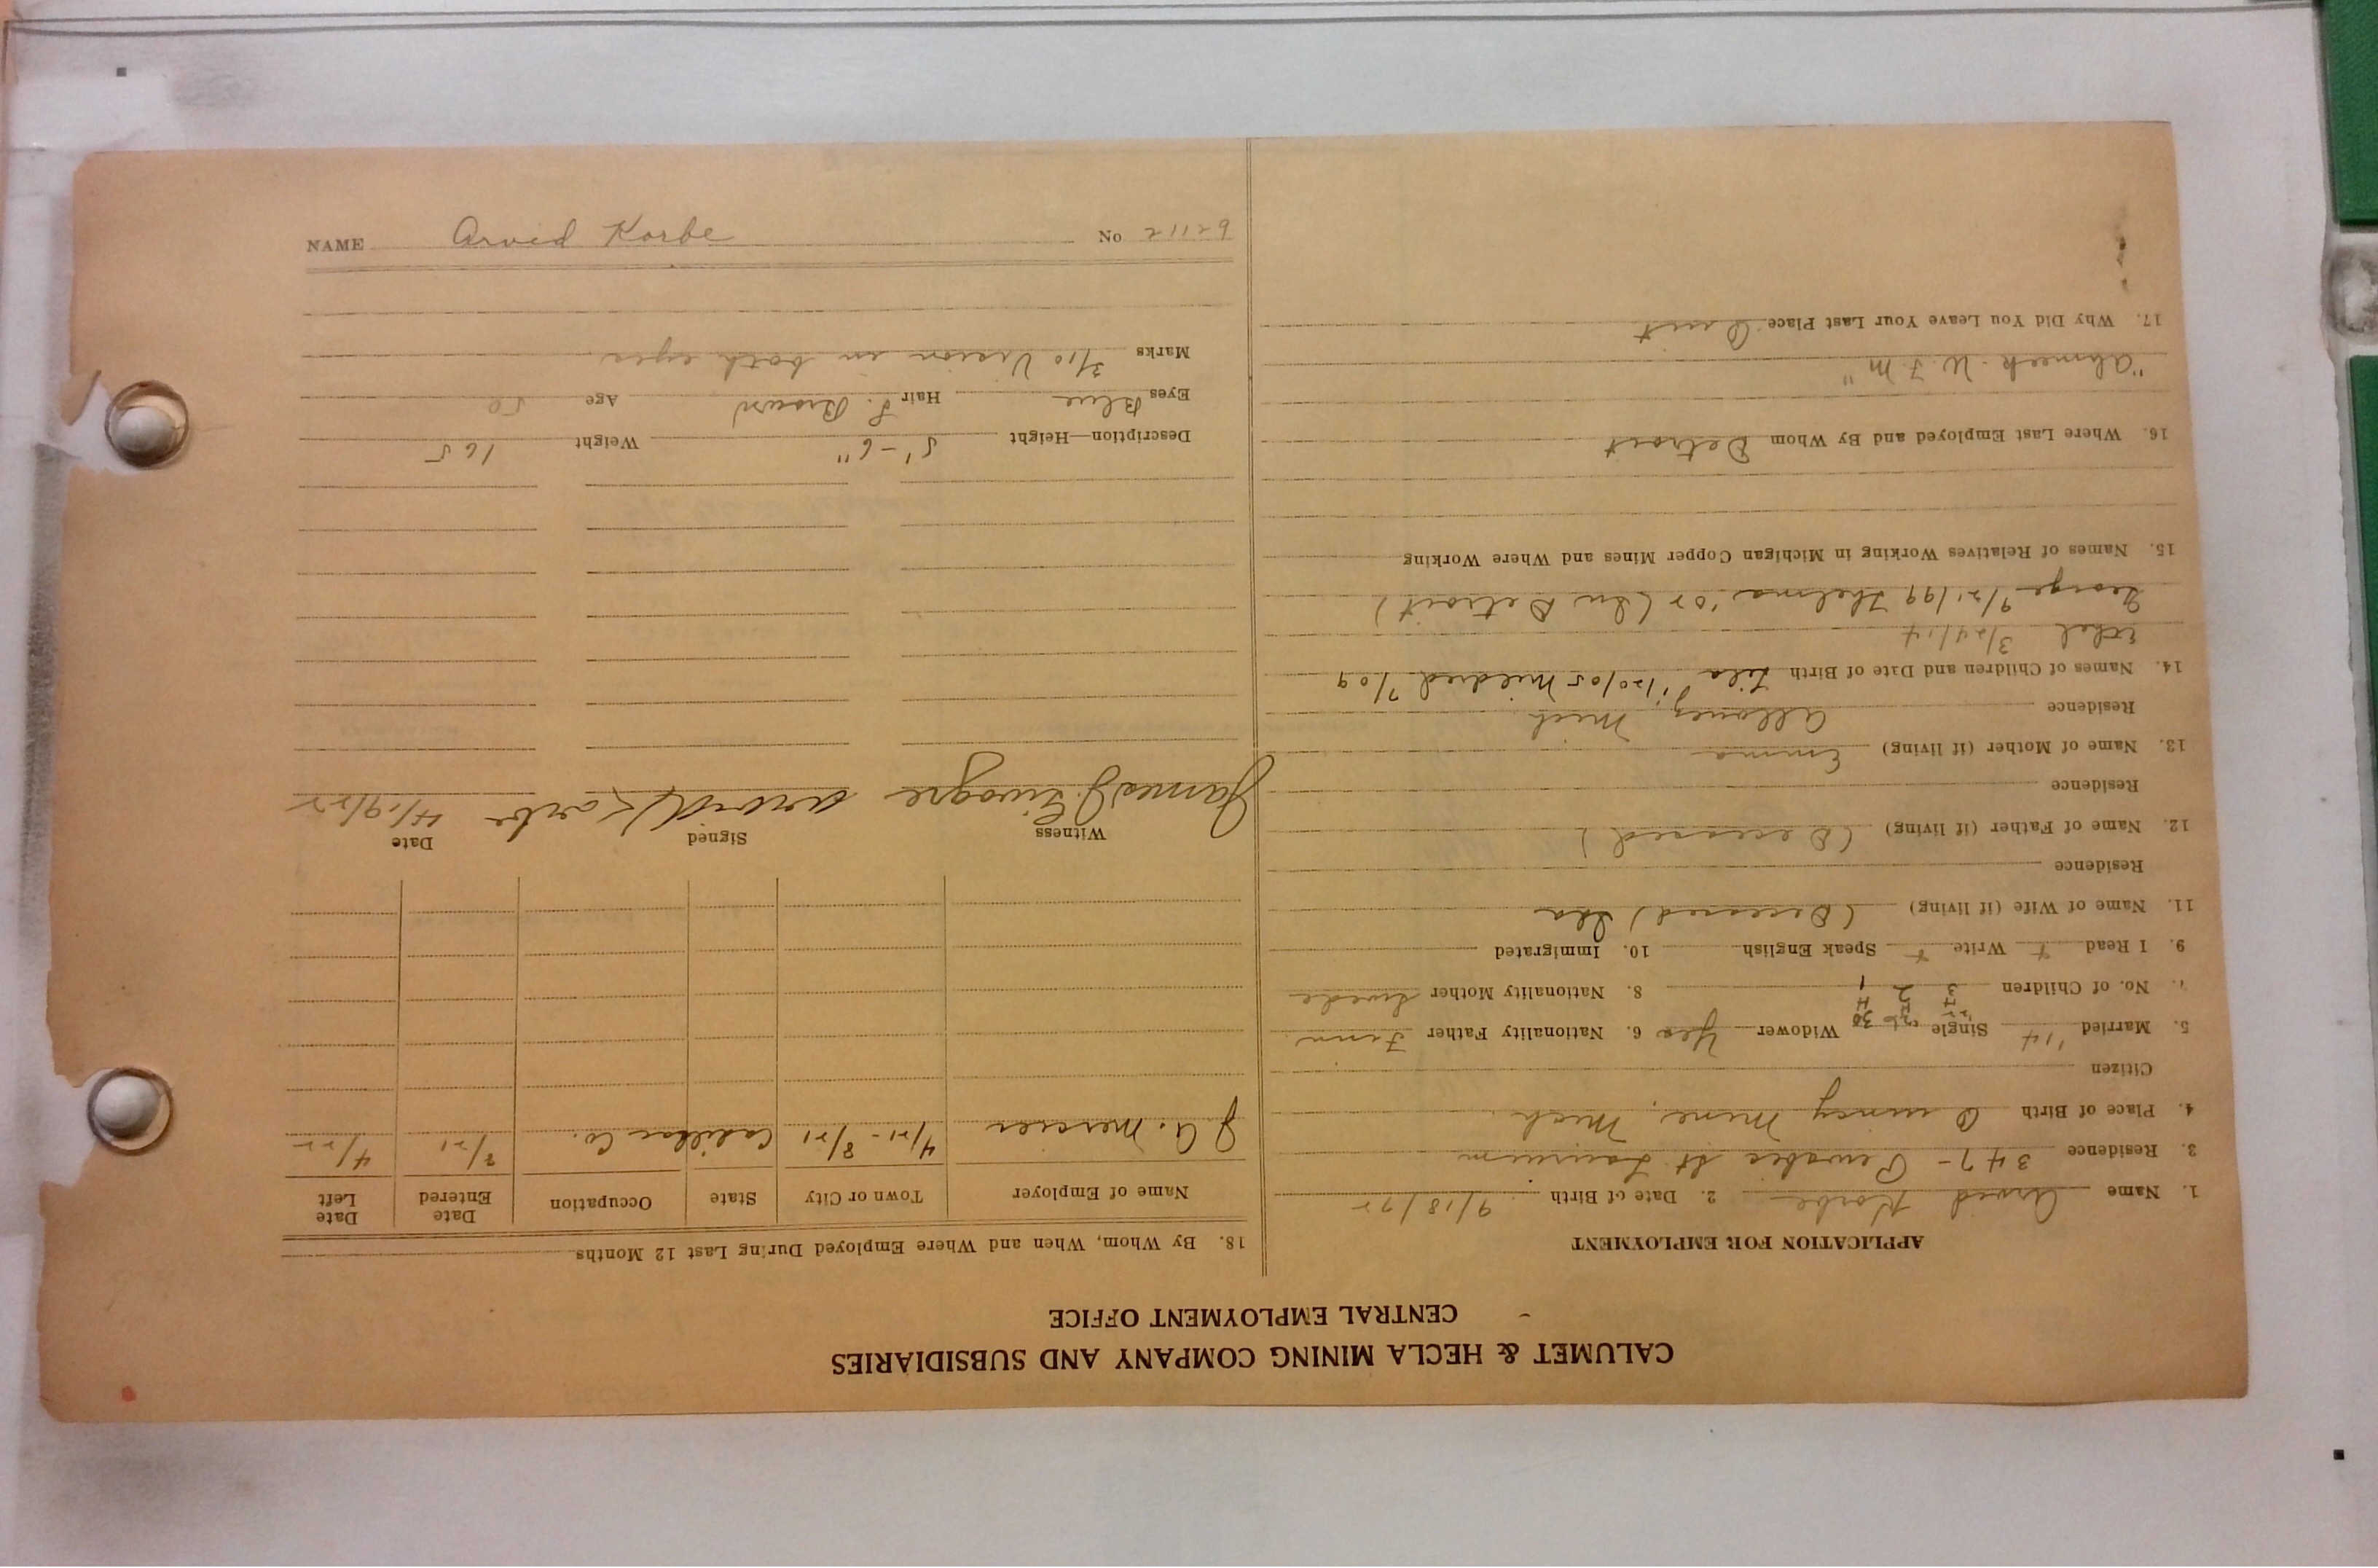 CALUMET & HECLA MINING COMPANY AND SUBSIDIARIES
CENTRAL EMPLOYMENT OFFICE
APPLICATION FOR EMPLOYMENT
1. Name Arvid Korbe 2. Date of Birth 9/18/72
3. Residence 347 - Pewabic St Laurium
4. Place of Birth Quincy Mine, Mich
Citizen
5. Married '14 Single Widower Yes 6. Nationality Father Finn
7. No. of Children 3 2 1 8. Nationality Mother Swede
9. I Read + Write + Speak English 10. Immigrated
11. Name of Wife (if living) (Deceased) Ida
Residence
12. Name of Father (if living) (Deceased)
Residence
13. Name of Mother (if living) Emma
Residence Allouez, Mich
14. Names of Children and Date of Birth Mildred 7/09
Ethel 3/24/14
George 9/21/99 Thelma '02 (In Detroit)
15. Names of Relatives Working in Michigan Copper Mines and Where Working
16. Where Last Employed and By Whom Detroit
"Ahmeek - W. F. M"
17. Why Did You Leave Your Last Place Quit
18. By Whom, When and Where Employed During Last 12 Months
Name of Employer Town or City State Occupation Date Entered Date Left
J. A. Mercier 4/21 - 8/21 Cadillac Co. 8/21 4/22
Witness Signed Date
James J. Arvid Korbe 4/19/22
Description—Height 5'-6" Weight 165
Eyes Blue Hair L. Brown Age 50
Marks 3/10 Vision in both eyes
NAME Arvid Korbe No 62112